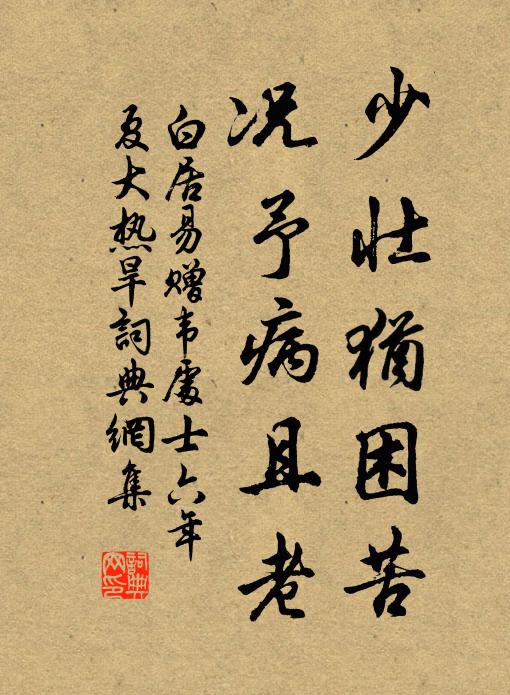 少壮犹困苦
况予病且老
白居易赠韦處士六年
夏大热旱詞典網集
詞典网印